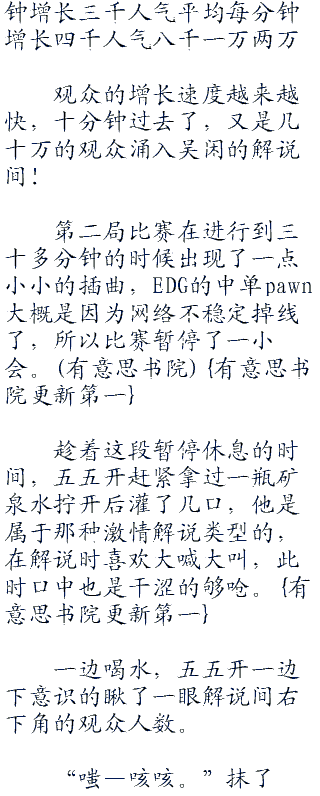 钟增长三千人气平均每分钟
增长四千人气八千一万两万
观众的增长速度越来越
快，十分钟过去了，又是几
十万的观众涌入吴闲的解说
间！
第二局比赛在进行到三
十多分钟的时候出现了一点
小小的插曲，EDG的中单pawn
大概是因为网络不稳定掉线
了，所以比赛暂停了一小
会。(有意思书院) {有意思书
院更新第一}
趁着这段暂停休息的时
间，五五开赶紧拿过一瓶矿
泉水拧开后灌了几口，他是
属于那种激情解说类型的，
在解说时喜欢大喊大叫，此
时口中也是干涩的够呛。{有
意思书院更新第一}
一边喝水，五五开一边
下意识的瞅了一眼解说间右
下角的观众人数。
“嗤—咳咳。”抹了